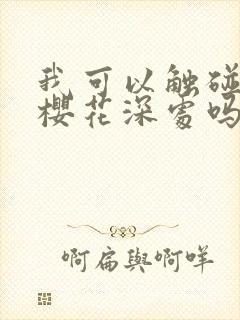 我可以触碰
樱花深處吗
啊扁與啊咩